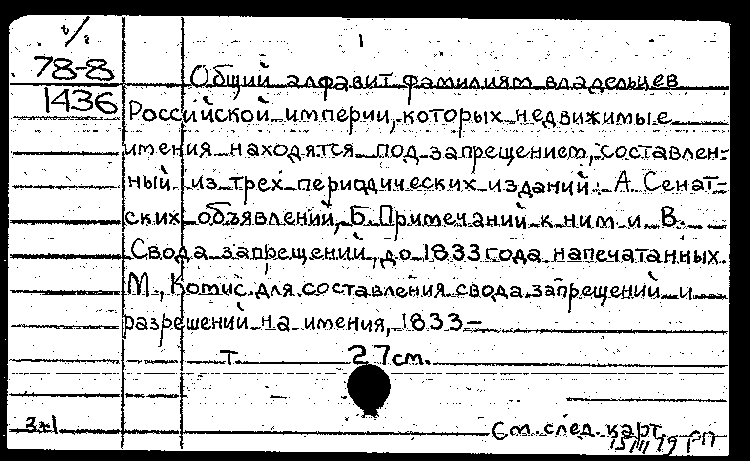 б/г
1
78-8
1436
Общий алфавит фамилиям владельцев
Российской империи, которых недвижимые
имения находятся под запрещением, составлен-
ный из трех периодических изданий: А. Сенат-
ских объявлений, Б. Примечаний к ним и В.
Свода запрещений, до 1833 года напечатанных.
М., Комис. для составления свода запрещений и
разрешений на имения, 1833—
т. 27см.
3*1
См. след. карт.